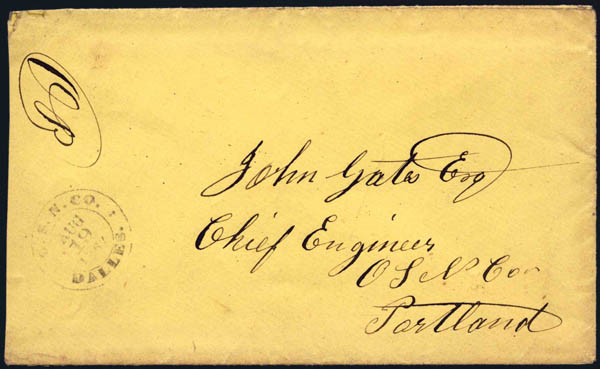 John Gates Esq
Chief Engineer
O S N Co
Portland
O.S.N.CO.
AUG
19
DALLES.